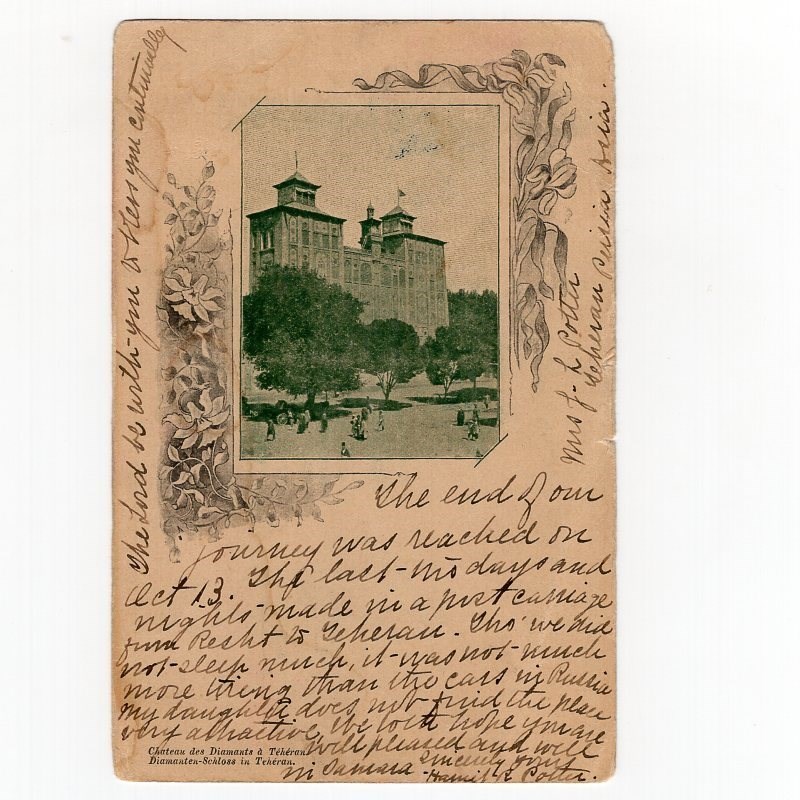 The end of our
journey was reached on
Oct 13. The last two days and
nights made in a post carriage
from Resht to Teheran. Tho' we did
not sleep much, it was not much
more tiring than the cars in Russia
My daughter does not find the place
very attractive. We both hope you are
well pleased and will
in Sincerely yours
Harriet R Potter.
The Lord be with you to bless you continually
Mrs J. L Potter
Teheran Persia Asia.
Chateau des Diamants à Téhéran.
Diamanten-Schloss in Teheran.